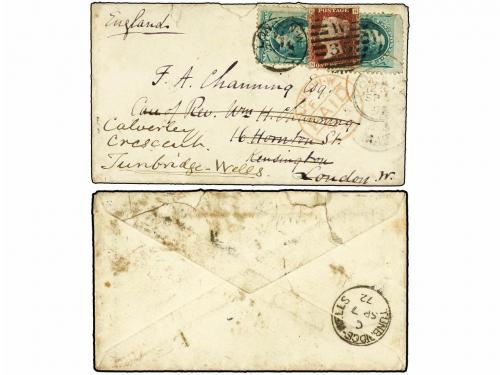 England
F. A. Channing Esq.
Care of Rev. Wm H. Channing
Calverley
16 Hornton St.
Crescent
Kensington
Tunbridge-Wells.
London. W.
POSTAGE
PAID
TUNBRIDGE-WELLS
C
SP 7
72